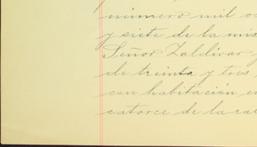 número mil o
y siete de la mis
Señor Zaldivar y
de treinta y tres
con habitación en
catorce de la ca